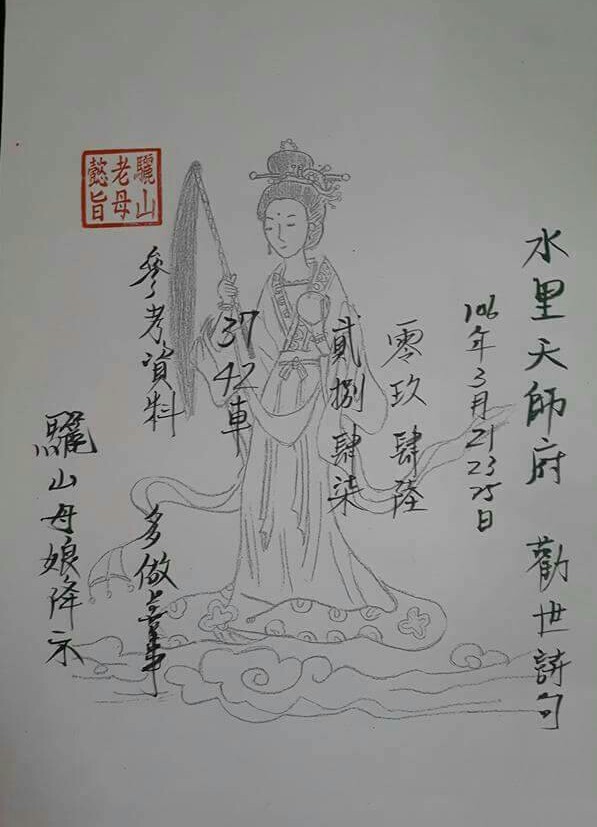 水里天師府 勸世詩句
106年3月21 23 25日
零玖 肆陸
貳捌 肆柒
37 42車
參考資料 多做善事
驪山母娘降示
驪山老母懿旨